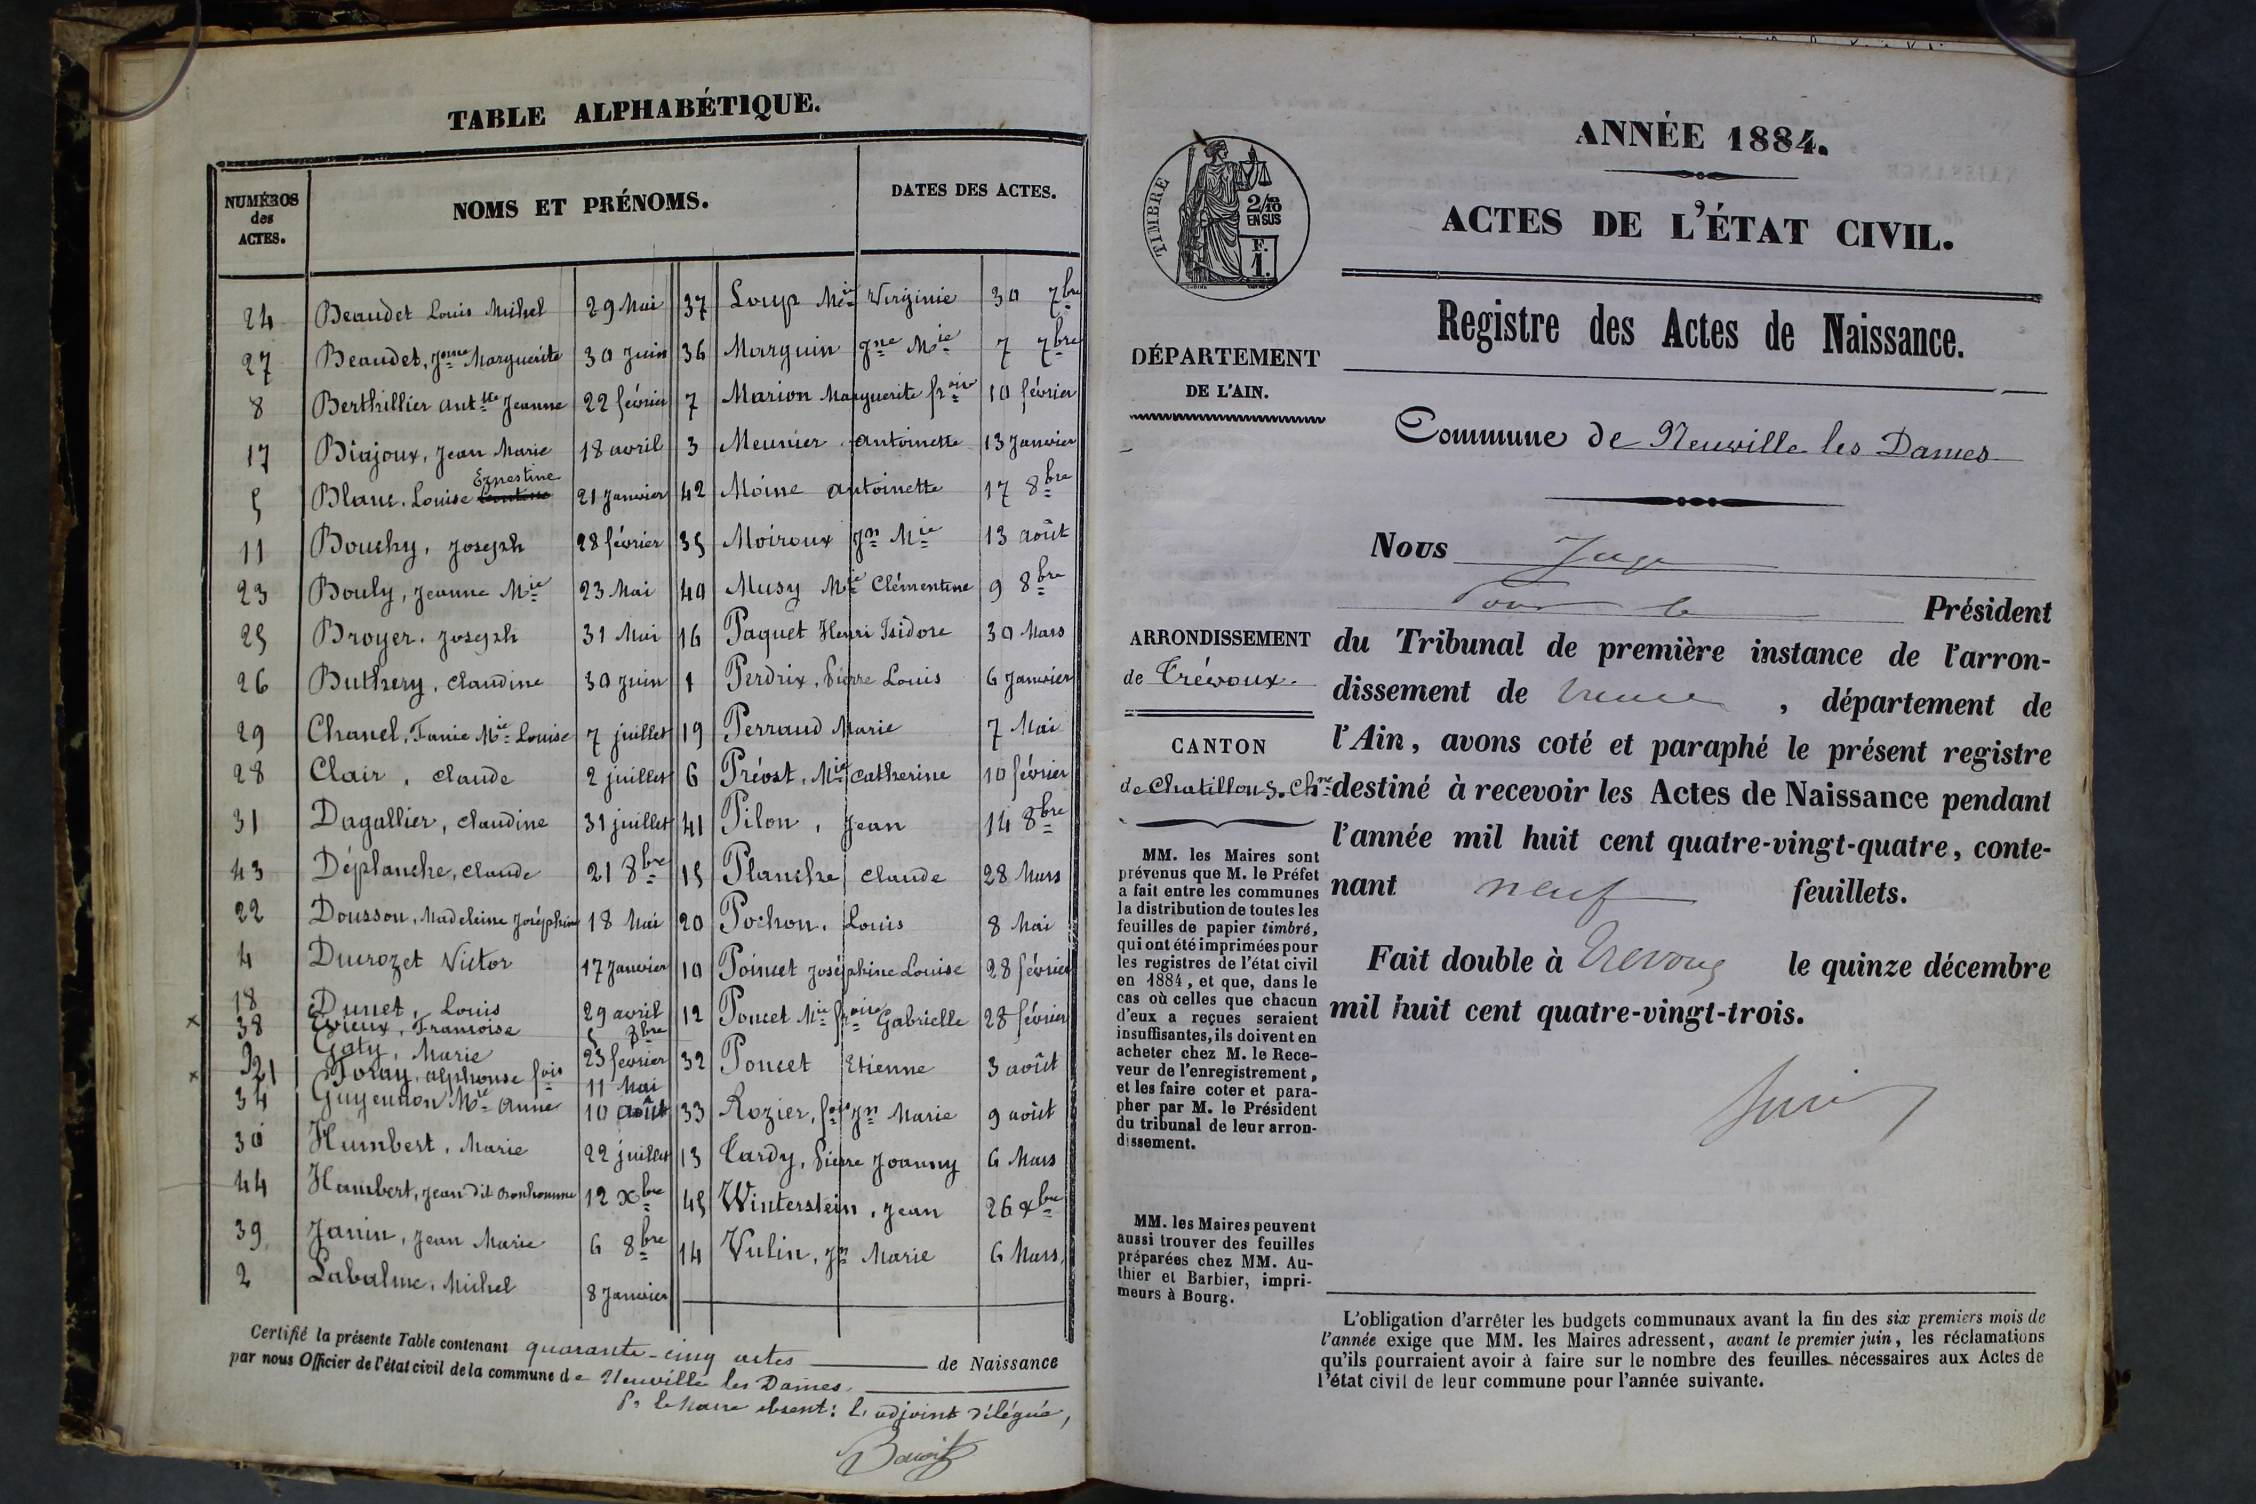 TABLE ALPHABÉTIQUE.
NUMÉROS des ACTES.
NOMS ET PRÉNOMS.
DATES DES ACTES.
24 Beaudet Louis Michel 29 Mai
27 Beaudet, Jnne Marguerite 30 Juin
8 Berthillier Anttte Jeanne 22 février
17 Biajoux, Jean Marie 18 avril
Ernestine
5 Blanc. Louise 21 Janvier
11 Bouchy, Joseph 28 février
23 Bouly, Jeanne Mie 23 Mai
25 Broyer. Joseph 31 Mai
26 Buthery, Claudine 30 Juin
29 Chanel, Fanie Mie Louise 7 juillet
28 Clair, Claude 2 juillet
31 Dagallier, Claudine 31 juillet
43 Déplanche, Claude 21 8bre
22 Dousson, Madeleine Joséphine 18 Mai
4 Ducrozet Victor 17 Janvier
18 Dunet, Louis 29 avril
x 38 Evieux, Francoise 5 8bre
9 Gaty, Marie 23 février
x 21 Foray, alphonse fois 11 Mai
34 Guyennon Mie Anne 10 août
30 Humbert, Marie 22 juillet
44 Humbert, Jean dit Bonhomme 12 xbre
39 Janin, Jean Marie 6 8bre
2 Labalme, Michel 8 Janvier
37 Loup Mie Virginie 30 7bre
36 Marguin Jne Mie 7 7bre
7 Marion Marguerite froise 10 février
3 Meunier Antoinette 13 Janvier
42 Moine Antoinette 17 8bre
35 Moiroux Jn Mie 13 août
40 Musy Mie Clémentine 9 8bre
16 Paquet Henri Isidore 30 Mars
1 Perdrix, Pierre Louis 6 Janvier
19 Perraud Marie 7 Mai
6 Prévost, Mie Catherine 10 février
41 Pilon, Jean 14 8bre
15 Planche Claude 28 Mars
20 Pochon, Louis 8 Mai
10 Poincet Joséphine Louise 28 février
12 Poncet Mie froise Gabrielle 28 février
32 Poncet Etienne 3 août
33 Rozier, fois Jn Marie 9 août
13 Tardy, Pierre Joanny 6 Mars
45 Winterstein, Jean 26 xbre
14 Vulin, Jn Marie 6 Mars
Certifié la présente Table contenant quarante-cinq actes de Naissance
par nous Officier de l'état civil de la commune de Neuville les Dames.
Pr le Maire absent: l'adjoint délégué,
Benoit
TIMBRE
2/10 EN SUS
F. 1.
DÉPARTEMENT
DE L'AIN.
ARRONDISSEMENT
de Trévoux.
CANTON
de Chatillon s. Chne
MM. les Maires sont
prévenus que M. le Préfet
a fait entre les communes
la distribution de toutes les
feuilles de papier timbré,
qui ont été imprimées pour
les registres de l'état civil
en 1884, et que, dans le
cas où celles que chacun
d'eux a reçues seraient
insuffisantes, ils doivent en
acheter chez M. le Rece-
veur de l'enregistrement,
et les faire coter et para-
pher par M. le Président
du tribunal de leur arron-
dissement.
MM. les Maires peuvent
aussi trouver des feuilles
préparées chez MM. Au-
thier et Barbier, impri-
meurs à Bourg.
ANNÉE 1884.
ACTES DE L'ÉTAT CIVIL.
Registre des Actes de Naissance.
Commune de Neuville les Dames
Nous Juge
Pour le Président
du Tribunal de première instance de l'arron-
dissement de Trévoux, département de
l'Ain, avons coté et paraphé le présent registre
destiné à recevoir les Actes de Naissance pendant
l'année mil huit cent quatre-vingt-quatre, conte-
nant neuf feuillets.
Fait double à Trevoux le quinze décembre
mil huit cent quatre-vingt-trois.
L'obligation d'arrêter les budgets communaux avant la fin des six premiers mois de
l'année exige que MM. les Maires adressent, avant le premier juin, les réclamations
qu'ils pourraient avoir à faire sur le nombre des feuilles nécessaires aux Actes de
l'état civil de leur commune pour l'année suivante.